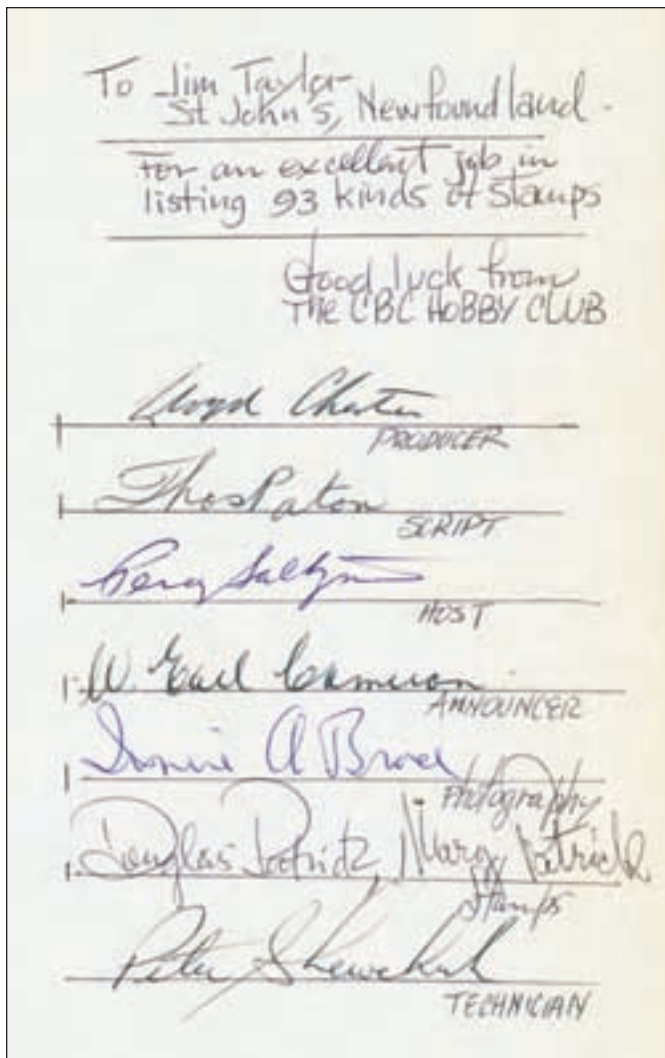 To Jim Taylor
St John's, Newfoundland.
For an excellent job in
listing 93 kinds of Stamps
Good luck from
THE CBC HOBBY CLUB
Lloyd Chester
PRODUCER
Thos Paton
SCRIPT
Percy Saltzman
HOST
W. Earl Cameron
ANNOUNCER
A
Photography
Douglas Patrick, Mary Patrick
Stamps
Peter Shewchuk
TECHNICIAN